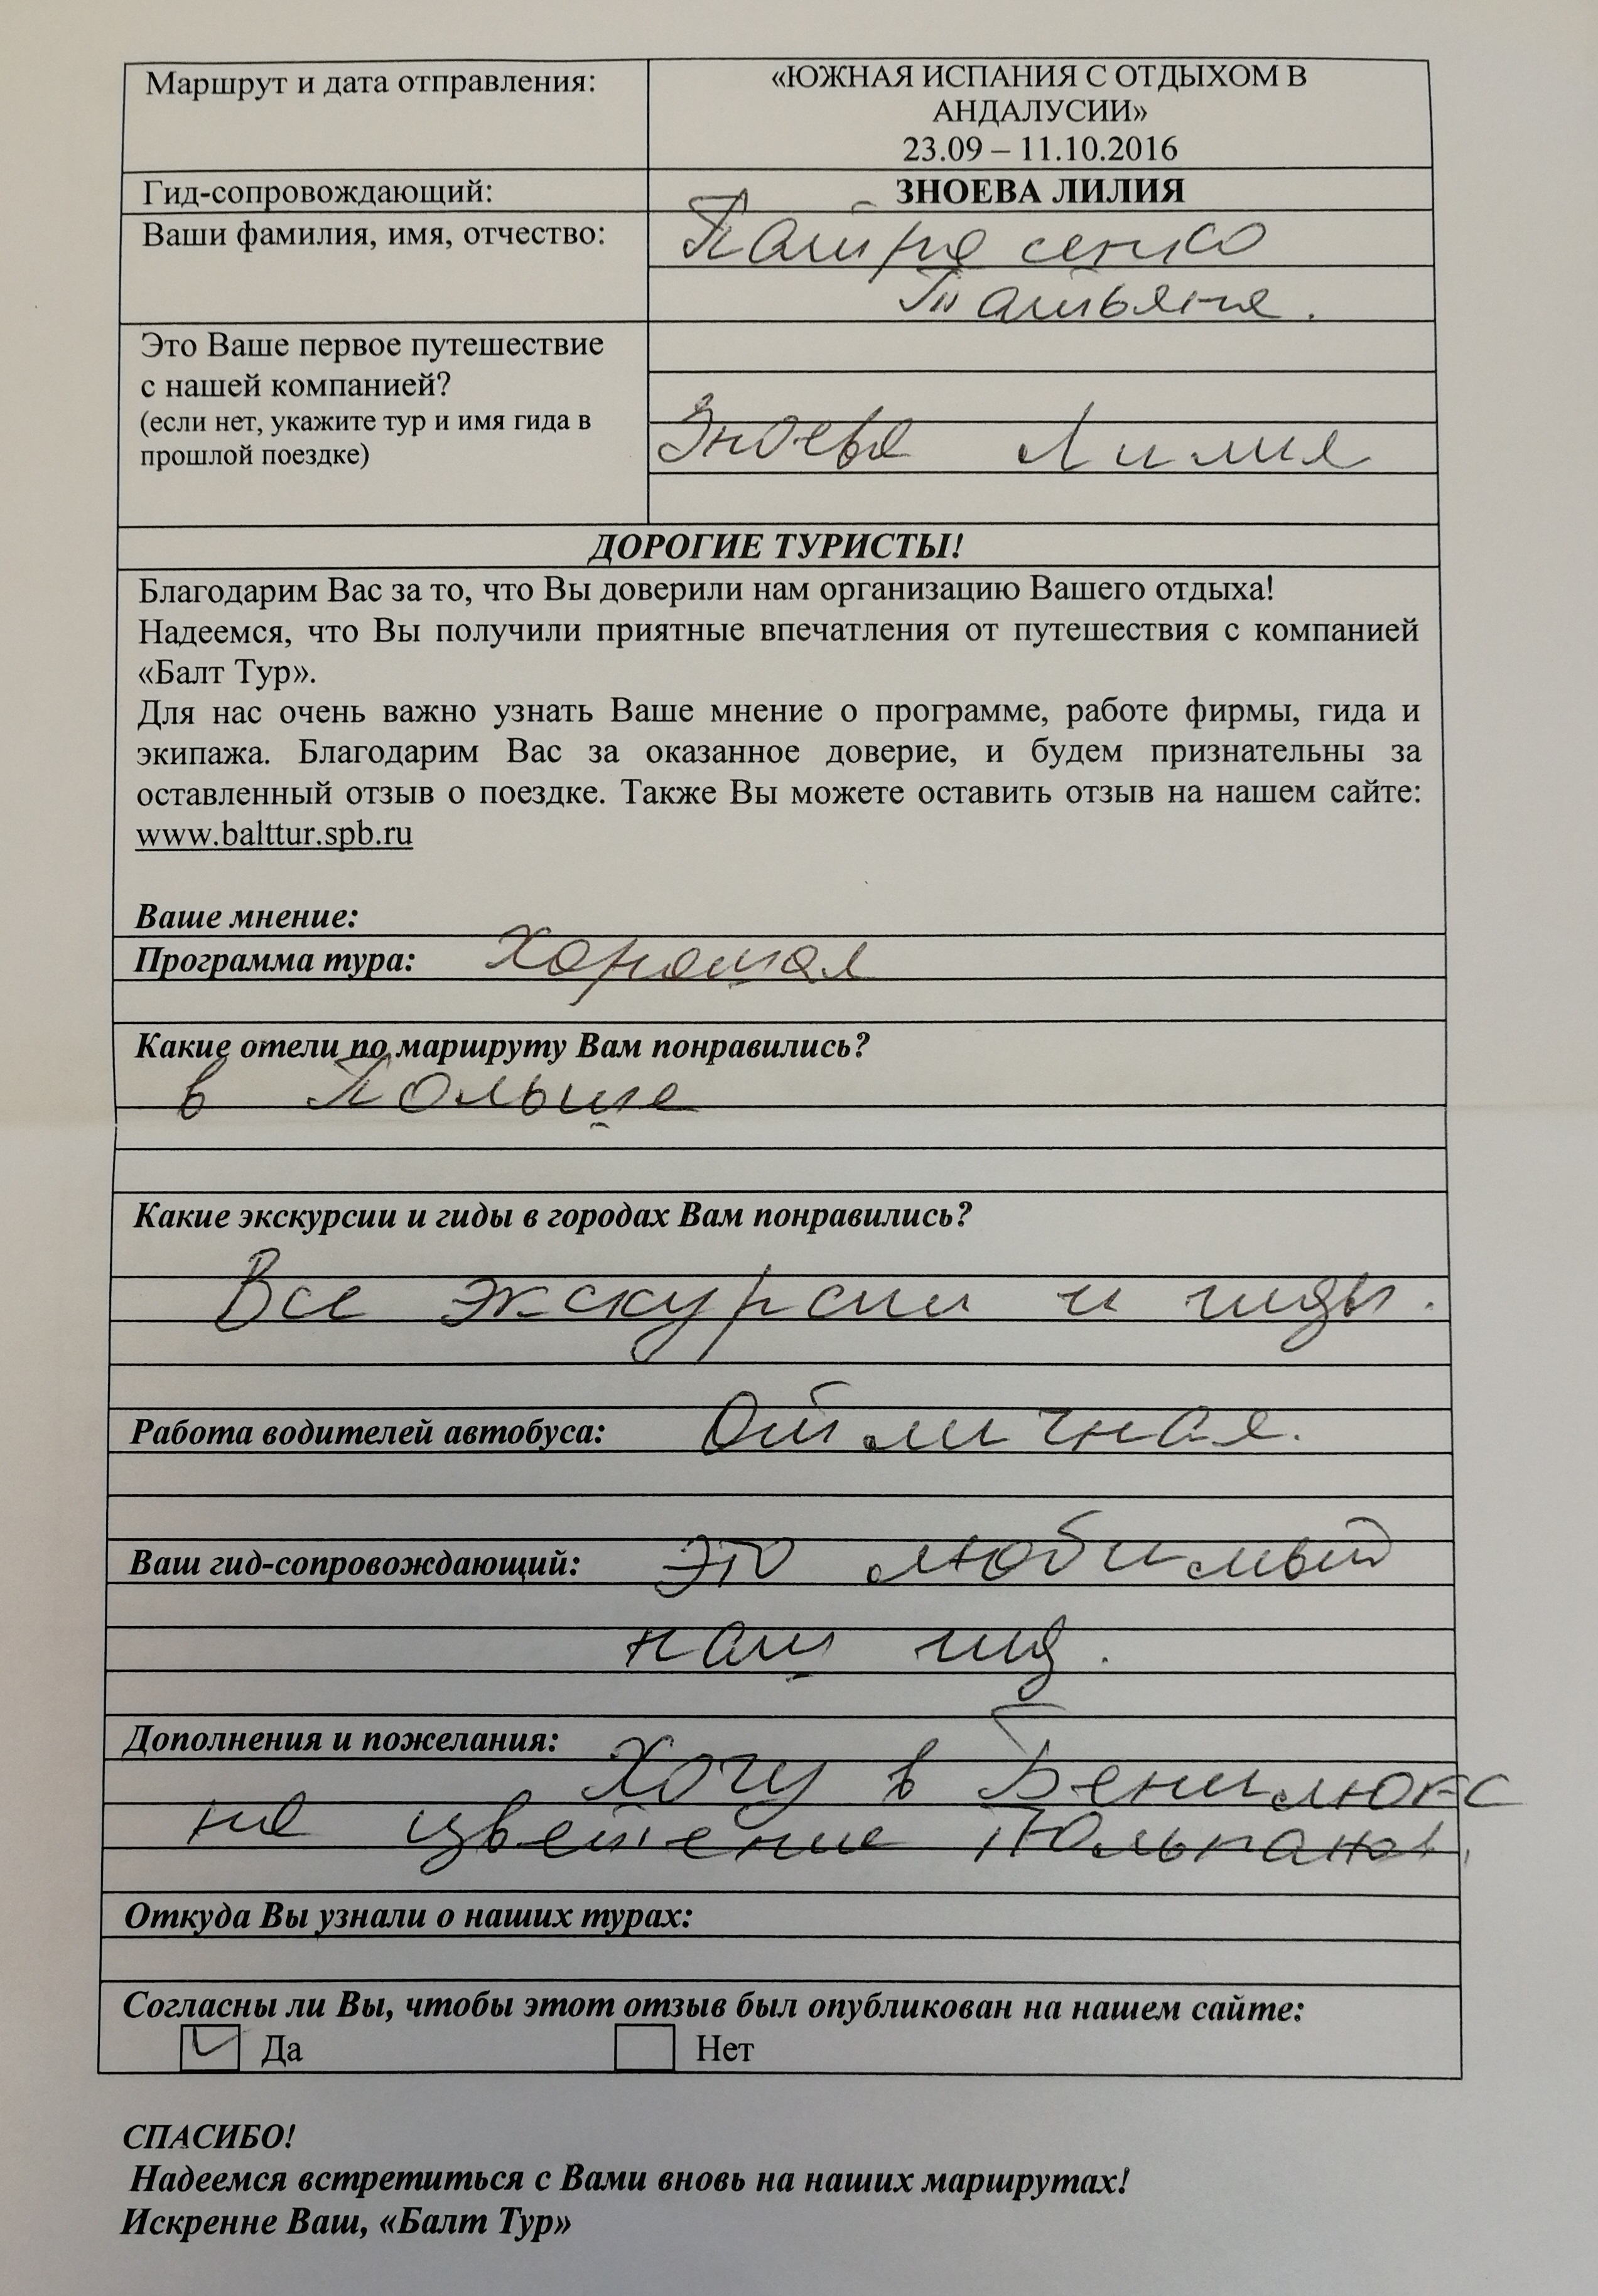 Маршрут и дата отправления:
«ЮЖНАЯ ИСПАНИЯ С ОТДЫХОМ В
АНДАЛУСИИ»
23.09 – 11.10.2016
Гид-сопровождающий:
ЗНОЕВА ЛИЛИЯ
Ваши фамилия, имя, отчество:
Татьяна.
Это Ваше первое путешествие
с нашей компанией?
(если нет, укажите тур и имя гида в
прошлой поездке)
Зноева Лилия
ДОРОГИЕ ТУРИСТЫ!
Благодарим Вас за то, что Вы доверили нам организацию Вашего отдыха!
Надеемся, что Вы получили приятные впечатления от путешествия с компанией
«Балт Тур».
Для нас очень важно узнать Ваше мнение о программе, работе фирмы, гида и
экипажа. Благодарим Вас за оказанное доверие, и будем признательны за
оставленный отзыв о поездке. Также Вы можете оставить отзыв на нашем сайте:
www.balttur.spb.ru
Ваше мнение:
Программа тура: Хорошая
Какие отели по маршруту Вам понравились?
в Польше
Какие экскурсии и гиды в городах Вам понравились?
Все экскурсии и гиды.
Работа водителей автобуса: Отличная.
Ваш гид-сопровождающий: это любимый
наш гид.
Дополнения и пожелания: Хочу в Бенилюкс
на цветение тюльпанов.
Откуда Вы узнали о наших турах:
Согласны ли Вы, чтобы этот отзыв был опубликован на нашем сайте:
Да Нет
СПАСИБО!
Надеемся встретиться с Вами вновь на наших маршрутах!
Искренне Ваш, «Балт Тур»